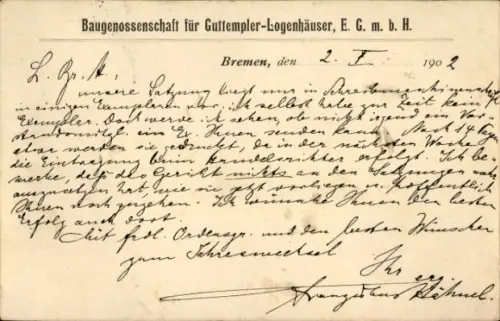 Baugenossenschaft für Guttempler-Logenhäuser, E. G. m. b. H.
Bremen, den 2. I. 1902
L. Br. H.,
unsere Satzung liegt nur in Schreibmaschinenschr.
in einigen Exemplaren vor. ich selbst habe zur Zeit kein
Exemplar. Doch werde ich sehen, ob nicht irgend ein Vor-
standsmitgl. ein Ex. Ihnen senden kann. Nach 14 Tagen
etwa werden sie gedruckt, da in der nächsten Woche
die Eintragung beim Handelsrichter erfolgt. Ich be-
merke, daß das Gericht nichts an den Satzungen
auszusetzen hat, wie sie jetzt vorliegen u. hoffentlich
Ihnen noch zugehen. Ich wünsche Ihnen den besten
Erfolg auch dort.
Mit frdl. Ordensgr. und den besten Wünschen
zum Jahreswechsel
Ihr erg.
Hähnel.